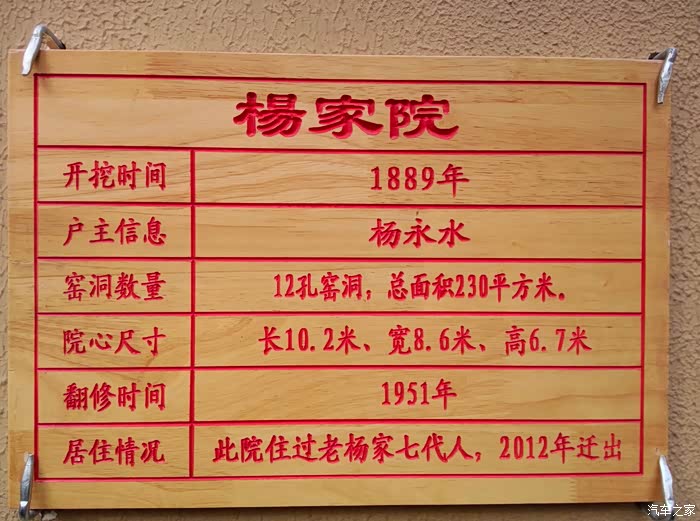 楊家院
开挖时间 1889年
户主信息 杨永水
窑洞数量 12孔窑洞，总面积230平方米。
院心尺寸 长10.2米、宽8.6米、高6.7米
翻修时间 1951年
居住情况 此院住过老杨家七代人，2012年迁出
汽车之家